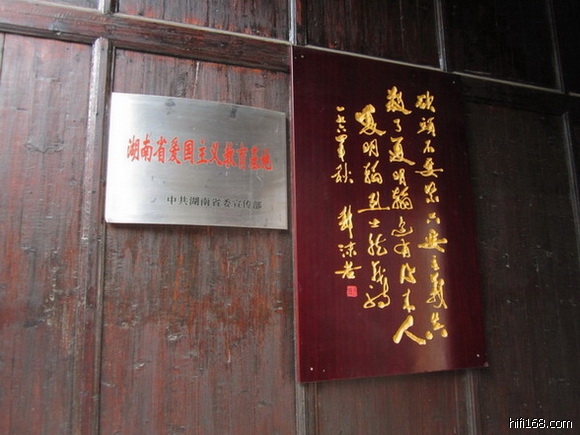 湖南省爱国主义教育基地
中共湖南省委宣传部
砍頭不要紧只要主義真
殺了夏明翰还有後来人
夏明翰烈士就義詩
一九六四年秋 郭沫若
hifi168.com